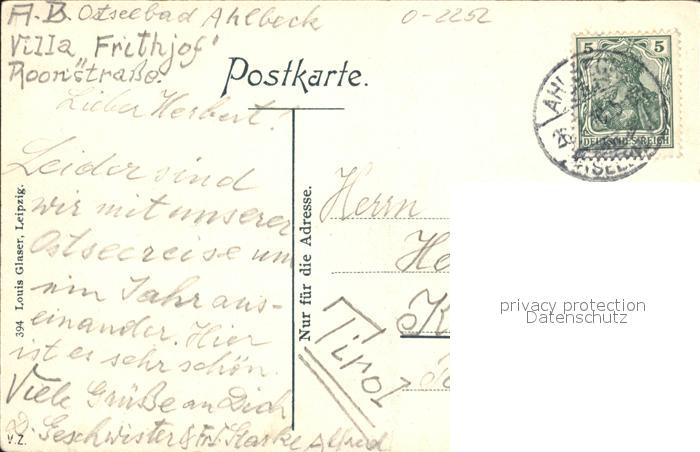 A.B. Ostseebad Ahlbeck
Villa „Frithjof"
Roonstraße.
0-2252
Postkarte.
5 5
DEUTSCHES REICH
Lieber Herbert!
Leider sind
wir mit unserer
Ostseereise um
ein Jahr aus-
einander. Hier
ist es sehr schön.
Viele Grüße an Dich
Geschwister & Frl. Starke Alfred
V.Z.
394 Louis Glaser, Leipzig.
Nur für die Adresse.
Herrn
He
K
Tirol
privacy protection
Datenschutz